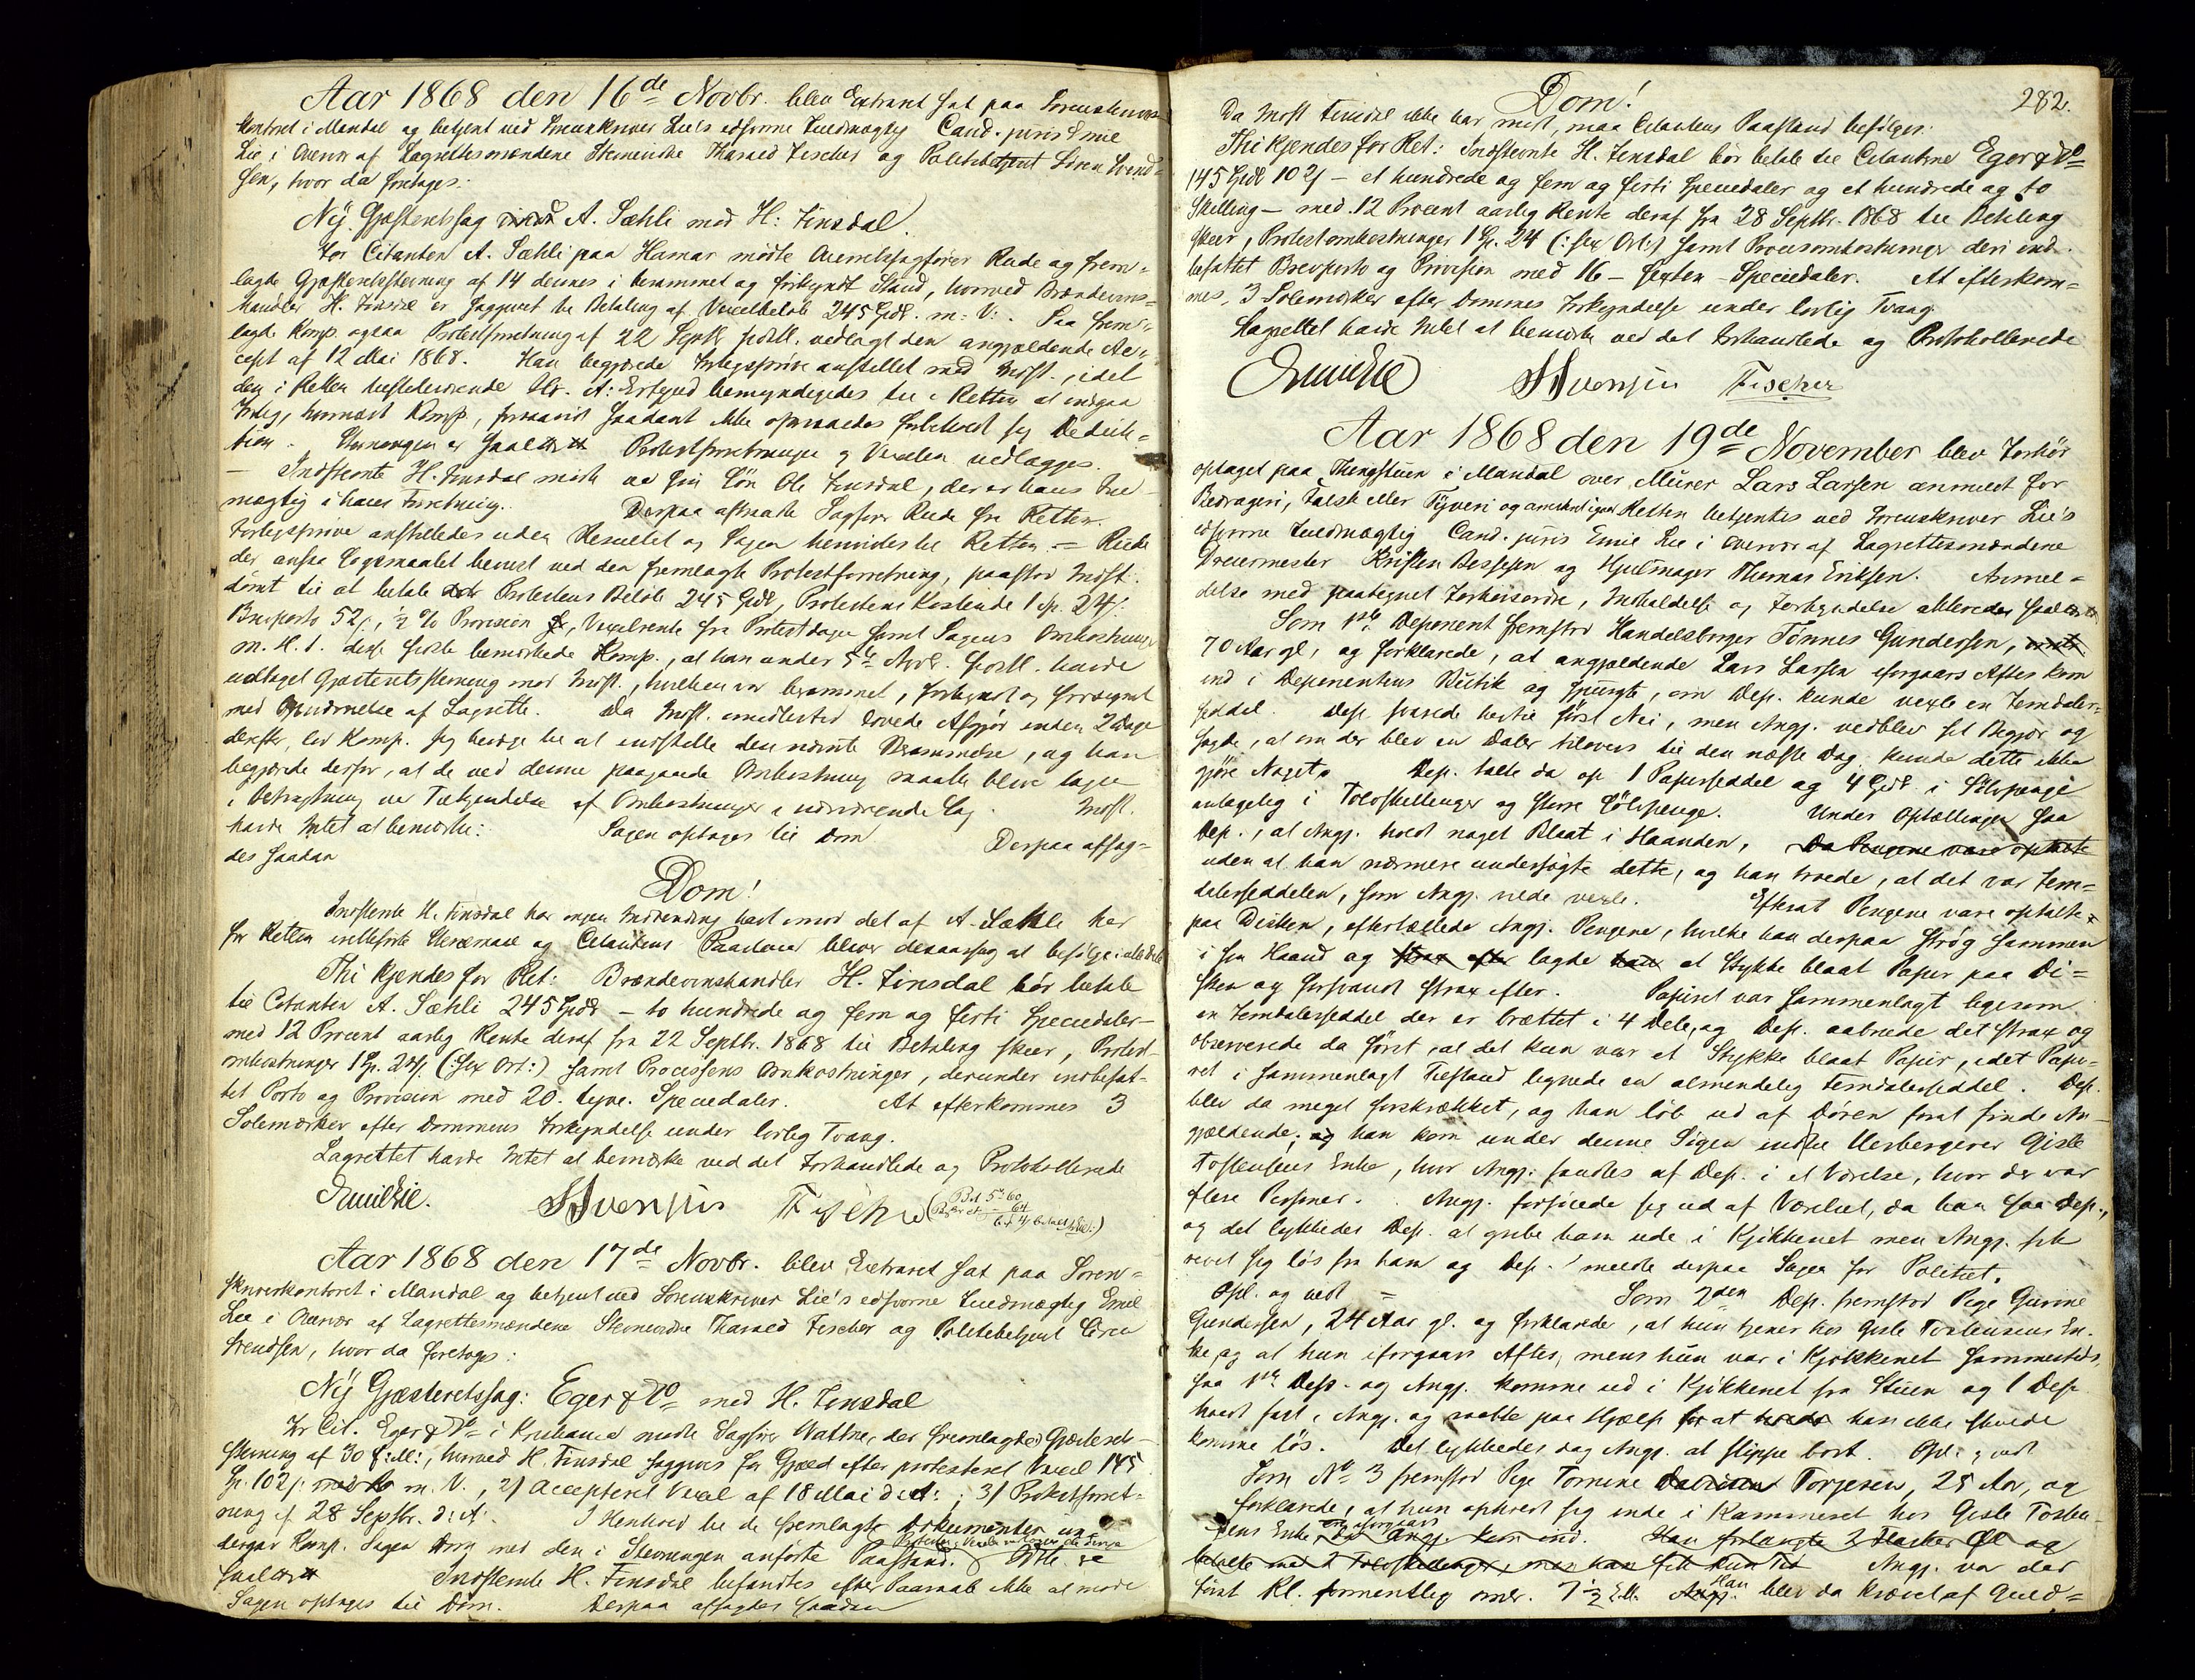 Aar 1868 den 16de Novbr. blev Extraret sat paa Sorenskriver-
kontoret i Mandal og betjent ved Sorenskriver Lie's edsvorne Fuldmægtig Cand. juris Emil
Lie i Overvær af Lagrettesmændene Stevnevidne Fischer og Politibetjent Sören Svend-
sen, hvor da foretages:
Ny Gjæsteretssag A. Sæhli mod H. Finsdal.
For Citanten A. Sæhli paa Hamar mödte Overretssagförer Rude og frem-
lagde Gjæsteretsstevning af 14 dennes i berammet og forkyndt Stand, hvorved Brændevins-
handler H. Finsdal er saggivet til Betaling af Vexelbelöb 245 Spdl. m. V. Saa frem-
lagde Komp. ogsaa Protestforretning af 22 Septbr sidstl. vedlagt den angjældende Ac-
cept af 12 Mai 1868. Han begjærede Forligspröve anstillet med Indst., idet
den i Retten tilstedeværende Hr. A. bemyndigedes til i Retten at indgaa
Forlig, hvornæst Komp., forsaavidt saadant ikke opnaaedes forbeholdt sig Deduk-
tion. Stevningen er saalyd. Protestforretningen og Vexelen vedlægges.
– Indstevnte H. Finsdal mödte ved sin Sön Ole Finsdal, der er hans Fuld-
mægtig i hans Forretning. Derpaa aftraadte Sagförer Rude fra Retten.
Forligspröve anstilledes uden Resultat og Sagen henvistes til Retten. – Rude
der ansaa Sögsmaalet bevist ved den fremlagte Protestforretning, paastod Indst.
dömt til at betale Protestens Belöb 245 Spdl, Protestens Kostende 1 Sp. 24 s.
Brevporto 52 s., ½ % Provision, Vexelrente fra Protestdagen samt Sagens Omkostninger
m. H. t. disse sidste bemærkede Komp., at han under 5te Novbr. sidstl. havde
udtaget Gjæsteretsstevning mod Indst., hvilken var berammet, forkyndt og forsynet
med Opnævnelse af Lagrette. Da Indst. imidlertid lovede Afgjör inden 2 Dage
derefter, lod Komp. sig bevæge til at indstille den nævnte Berammelse, og han
begjærede derfor, at de ved denne paagaaede Omkostninger maatte blive tagen
i Betragtning ved Tilkjendelse af Omkostninger i nærværende Sag. Indst.
havde Intet at bemærke. Sagen optoges til Dom Derpaa afsag-
des saadan
Dom!
Indstevnte H. Finsdal har ingen Indvending havt imod det af A. Sæhli her
for Retten indförte Skræmaal og Citantens Paastand bliver desaarsag at befölge i alle Dele
Thi kjendes for Ret: Brændevinshandler H. Finsdal bör betale
til Citanten A. Sæhli 245 Spdl – to hundrede og fem og förti Speciedaler –
med 12 Procent aarlig Rente deraf fra 22 Septbr. 1868 til Betaling skeer, Protest-
omkostninger 1 Sp. 24 s. (: sex Ort :) samt Processens Omkostninger, derunder indbefat-
tet Porto og Provision med 20. tyve. Speciedaler. At efterkommes 3
Solemærker efter Dommens Forkyndelse under lovlig Tvang.
Lagrettet havde Intet at bemærke ved det Forhandlede og Protokollerede
Emil Lie. SSvensen Fischer
Aar 1868 den 17de Novbr. blev Extraret sat paa Soren-
skriverkontoret i Mandal og betjent ved Sorenskriver Lie's edsvorne Fuldmægtig Emil
Lie i Overvær af Lagrettesmændene Stevnevidne Fischer og Politibetjent Sören
Svendsen, hvor da foretages:
Ny Gjæsteretssag: Eger & Co mod H. Finsdal
For Cit. Eger & Co i Kristiania mödte Sagförer Wattne, der fremlagde 1) Gjæsterets-
stevning af 30 f. M., hvorved H. Finsdal saggives for Gjæld efter protesteret Vexel 145
Sp. 102 s. m. V., 2) Accepteret Vexel af 18 Mai d. A.; 3) Protestforret-
ning af 28 Septbr. d. A. I Henhold til de fremlagte Dokumenter un-
dergav Komp. Sagen Dom med den i Stevningen anförte Paastand.
saalyd. Indstevnte H. Finsdal befandtes efter Paaraab ikke at möde
Sagen optoges til Dom. Derpaa afsagdes saadan
282.
Dom!
Da Indst Finsdal ikke har mödt, maa Citantens Paastand befölges.
Thi kjendes for Ret: Indstevnte H. Finsdal bör betale til Citanterne Eger & Co
145 Spdl 102 s – et hundrede og fem og förti Speciedaler og et hundrede og to
Skilling – med 12 Procent aarlig Rente deraf fra 28 Septbr. 1868 til Betaling
skeer, Protestomkostninger 1 Sp. 24 (: sex Ort :) samt Procesomkostninger deri ind-
befattet Brevporto og Provision med 16 – sexten – Speciedaler. At efterkom-
mes 3 Solemærker efter Dommens Forkyndelse under lovlig Tvang.
Lagrettet havde Intet at bemærke ved det Forhandlede og Protokollerede
Emil Lie SSvensen Fischer
Aar 1868 den 19de November blev Forhör
optaget paa Thingstuen i Mandal over Murer Lars Larsen anmeldt for
Bedrageri, Falsk eller Tyveri og Retten betjentes ved Sorenskriver Lie's
edsvorne Fuldmægtig Cand. juris Emil Lie i Overvær af Lagrettesmændene
Dreiermester Kristen Bessesen og Hjulmager Thomas Eriksen. Anmel-
delse med paategnet Forhörsordre, Indkaldelse og Forkyndelse
Som 1ste Deponent fremstod Handelsborger Tönnes Gundersen,
70 Aar gl, og forklarede, at angjældende Lars Larsen iforgaars Aftes kom
ind i Deponentens Butik og spurgte, om Dep. kunde vexle en Femdaler-
seddel. Dep. svarede hertil först Nei, men Angj. vedblev sit Begjær og
sagde, at om der blev en Daler tilovers til den næste Dag, kunde dette ikke
gjöre Noget. Dep. talte da op 1 Papirseddel og 4 Spdl. i Sölvpenge
antagelig i Tolvskillinger og större Sölvpenge. Under Optællingen saa
Dep., at Angj. holdt noget Blaat i Haanden, Da Pengene vare optalte
uden at han nærmere undersögte dette, og han troede, at det var Fem-
dalerseddelen, som Angj. vilde vexle. Efterat Pengene vare optalte
paa Disken, eftertællede Angj. Pengene, hvilke han derpaa strög sammen
i sin Haand og strax efter lagde han et Stykke blaat Papir paa Di-
sken og forsvandt strax efter. Papiret var sammenlagt ligesom
en Femdalerseddel der er brættet i 4 Dele, og Dep. aabnede det strax og
observerede da först, at det kun var et Stykke blaat Papir, idet Papi-
ret i sammenlagt Tilstand lignede en almindelig Femdalerseddel. Dep.
blev da meget forskrækket, og han löb ud af Dören forat finde An-
gjældende; og han kom under denne Sögen ind til Herbergerer Gisle
Tostensens Enke, hvor Angj. fandtes af Dep. i et Værelse, hvor der var
flere Personer. Angj. forföiede sig ud af Værelset, da han saa Dep.,
og det lykkedes Dep. at gribe ham ude i Kjökkenet men Angj. fik
revet sig lös fra ham og Dep. meldte derpaa Sagen for Politiet.
Opl. og vedt – Som 2den Dep. fremstod Pige Gurine
Gundersen, 24 Aar gl. og forklarede, at hun tjener hos Gisle Tostensens En-
ke, og at hun iforgaars Aftes, mens hun var i Kjökkenet sammesteds,
saa 1ste Dep. og Angj. komme ud i Kjökkenet fra Stuen og 1 Dep
holdt fast i Angj. og raabte paa Hjælp for at han ikke skulde
komme lös. Det lykkedes dog Angj. at slippe bort. Opl. & vedt
Som No 3 fremstod Pige Tomine Torjesen, 25 Aar, og
forklarede, at hun ophvoldt sig inde i Kammeret hos Gisle Tosten-
sens Enke da Angj. kom ind. Han forlangte 2 Flasker Öl og
betalte med 2 Tolvskillinger, men han fik kun Angj. var der
först Kl. formentlig omtr. 7½ Eft. Angj. Han blev da krævet af Guld-